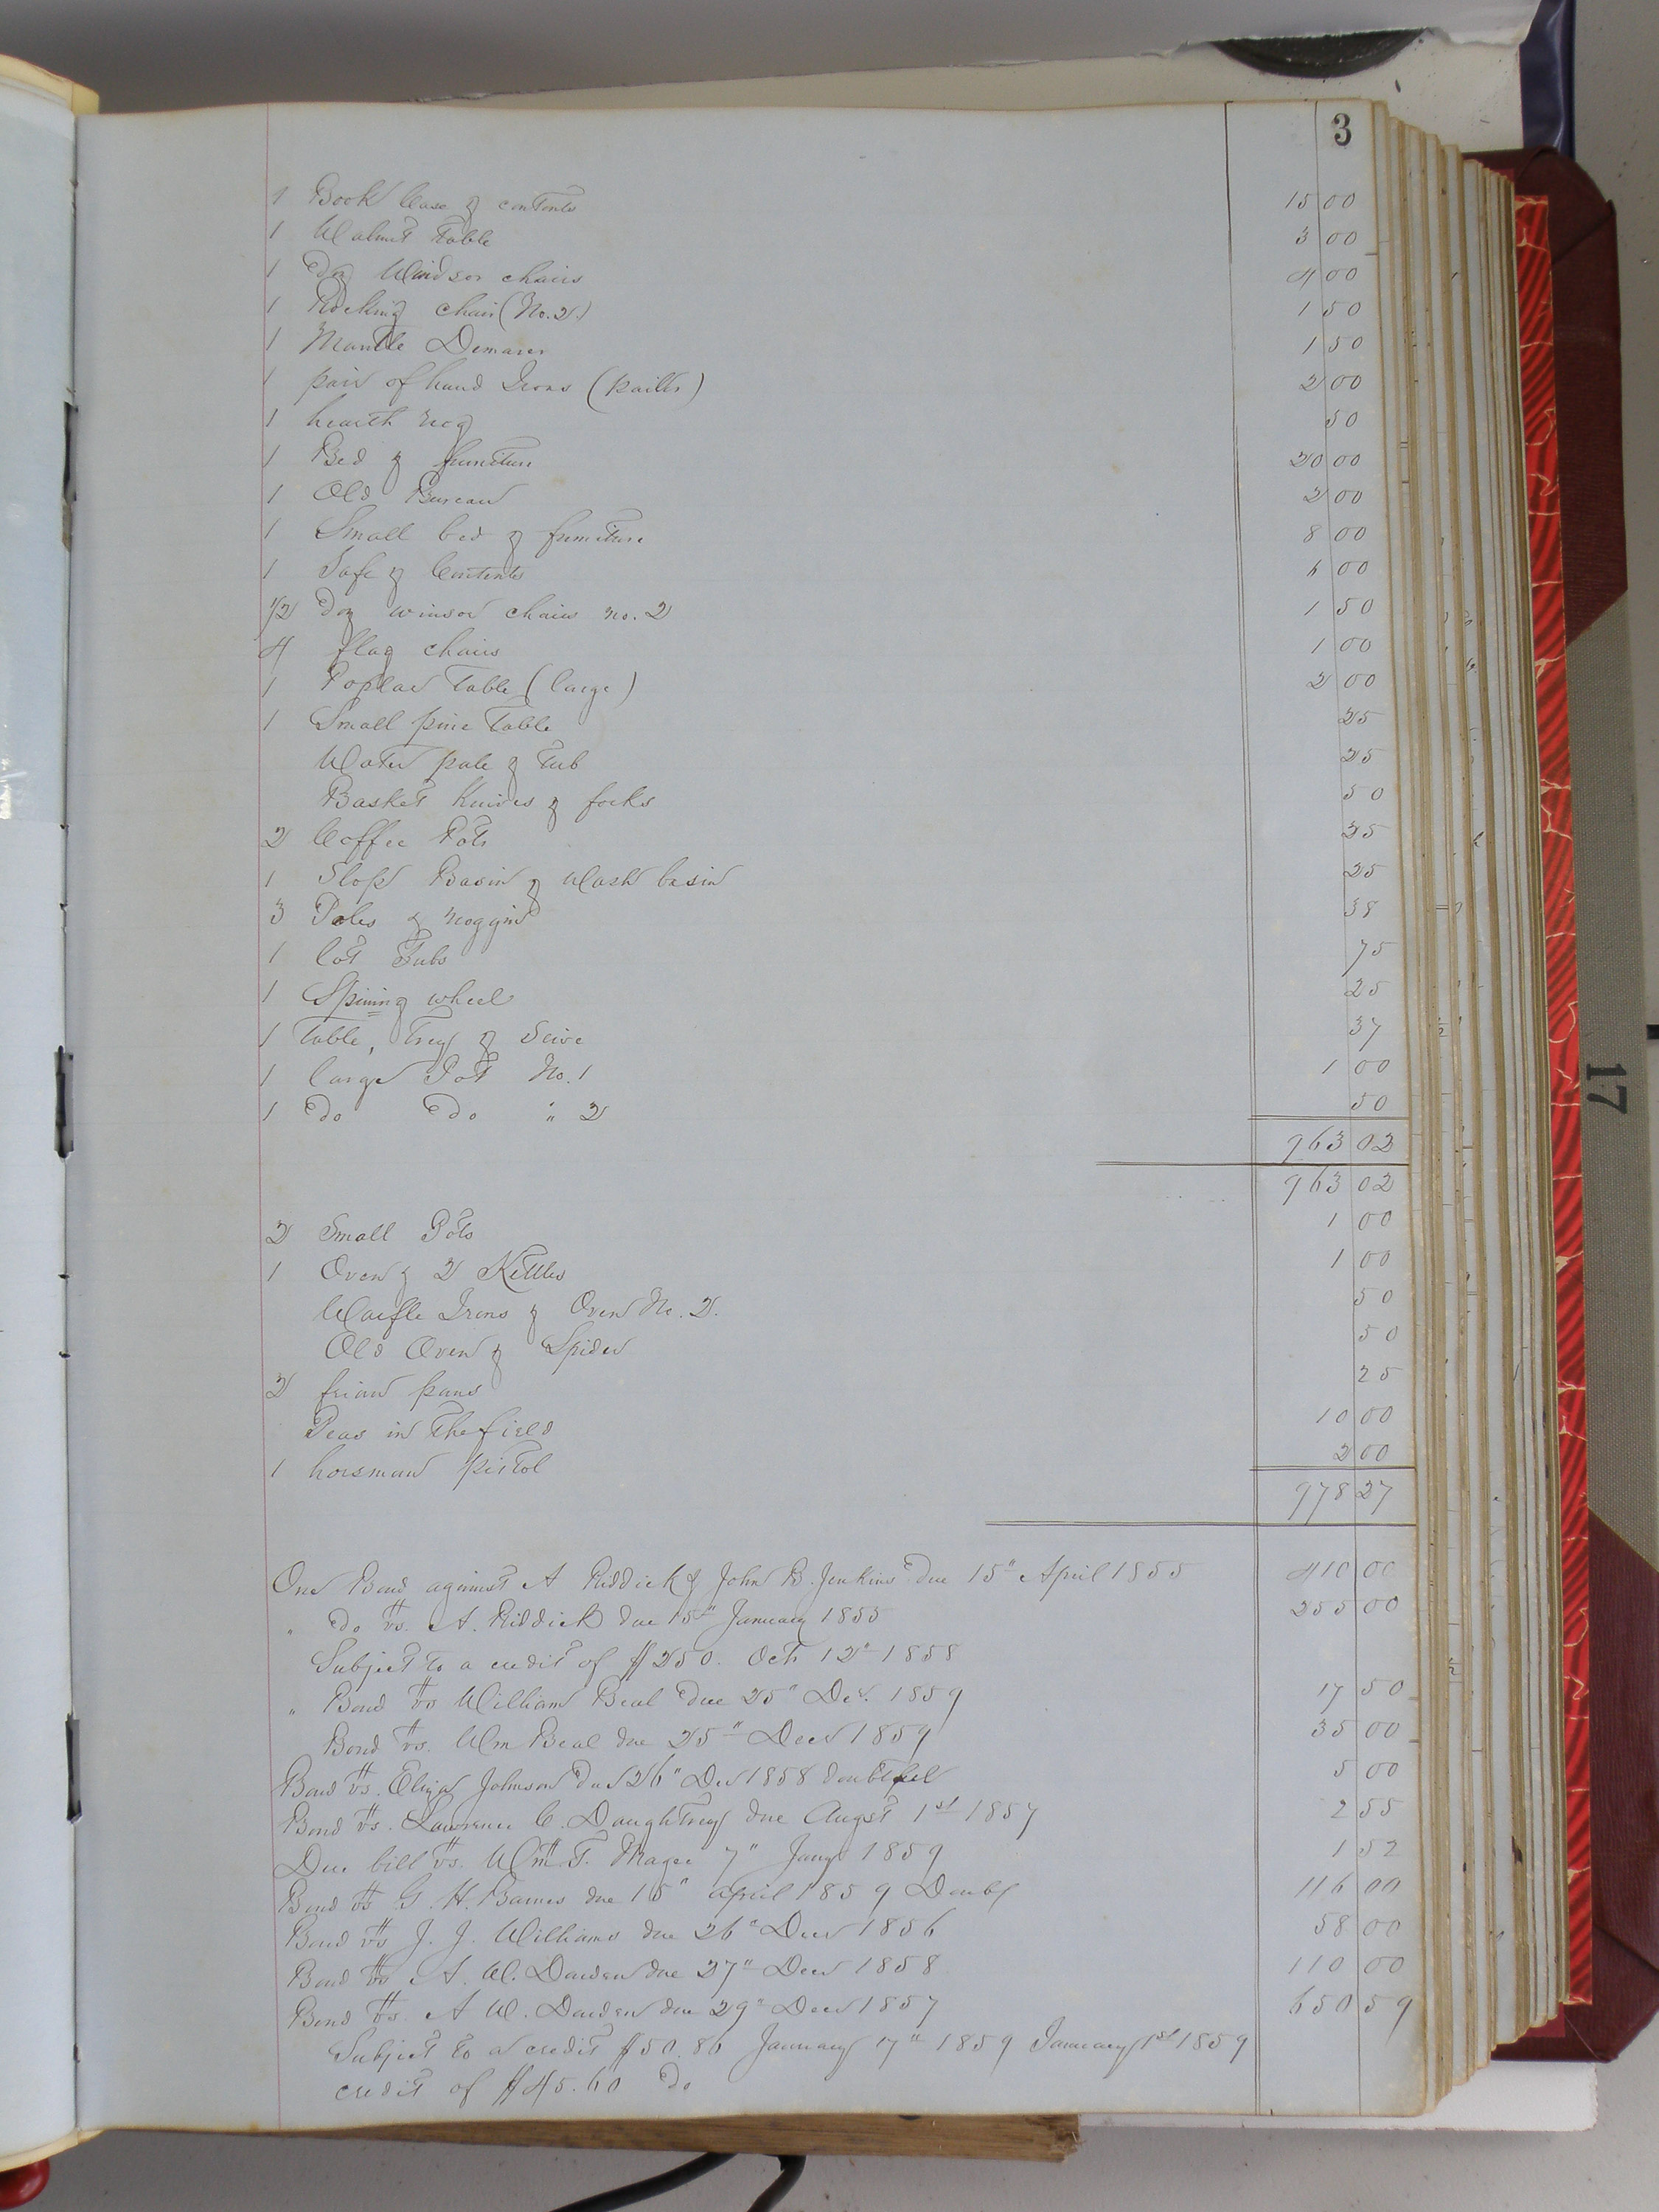 3
1 Book Case & contents 15 00
1 Walnut Table 3 00
1 Doz Windsor chairs 4 00
1 Rocking chair (No. 2.) 1 50
1 Mantle 1 50
1 pair of hand Irons ( ) 2 00
1 hearth rug 50
1 Bed & furniture 20 00
1 Old Bureau 2 00
1 Small bed & furniture 8 00
1 Safe & Contents 6 00
1/2 Doz winsor chairs no. 2 1 50
4 flag chairs 1 00
1 Poplar Table (large) 2 00
1 Small pine Table 25
Water pale & Tub 25
Basket Knives & forks 50
2 Coffee Pots 25
1 Slop Basin & Wash basin 25
3 Pales & noggin 38
1 lot Tubs 75
1 Spining wheel 25
1 Table, Tray & Seive 37
1 large Pot No. 1 1 00
1 Do Do " 2 50
963 02
963 02
2 Small Pots 1 00
1 Oven & 2 Kettles 1 00
Waffle Irons & Oven No. 2. 50
Old Oven & Spider 50
2 frian pans 25
Peas in the field 10 00
1 horsman pistol 2 00
978 27
One Bond against A Riddick & John B. Jenkins Due 15" April 1855 410 00
" Do vs. A. Riddick due 15" January 1855 255 00
Subject to a credit of $250. Oct 12" 1858
" Bond vs William Beal due 25" Dec. 1859 17 50
Bond vs. Wm Beal due 25" Decr 1859 35 00
Bond vs. Eliza Johnson Due 26" Decr 1858 doubtful 5 00
Bond vs. Lawrence C. Daughtrey due Augst 1st 1857 2 55
Due bill vs. Wm T. Magee 7" Jany 1859 1 52
Bond vs G. H. Barnes due 15" april 1859 Doubf 116 00
Bond vs J. J. Williams due 26" Decr 1856 58 00
Bond vs A. W. Darden due 27" Decr 1858 110 00
Bond vs. A W. Darden due 29" Decr 1857 650 59
Subject to a credit $50.86 January 17" 1859 January 1st 1859
credit of $45.60 Do
17